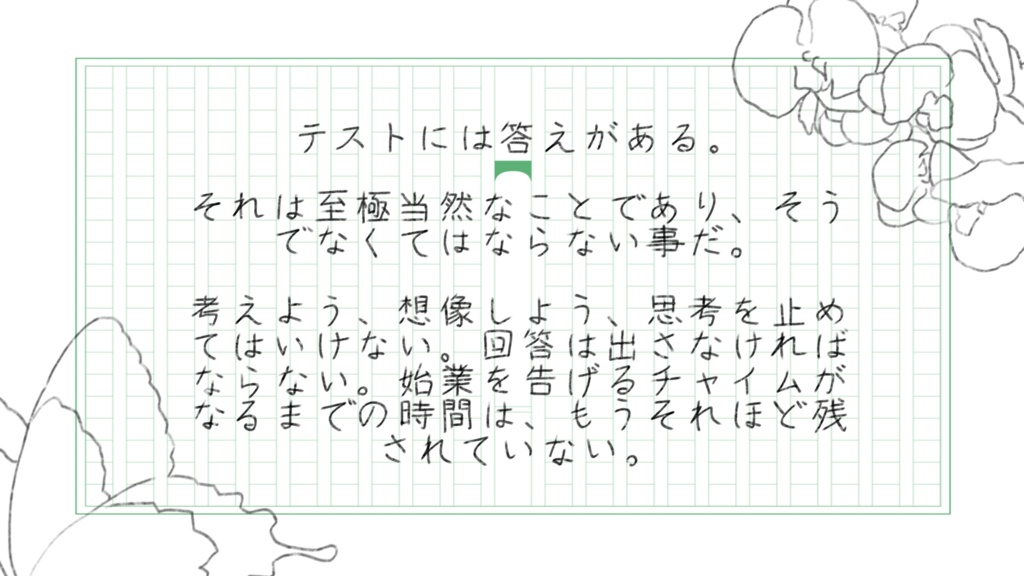 テストには答えがある。
それは至極当然なことであり、そう
でなくてはならない事だ。
考えよう、想像しよう、思考を止め
てはいけない。回答は出さなければ
ならない。始業を告げるチャイムが
なるまでの時間は、もうそれほど残
されていない。